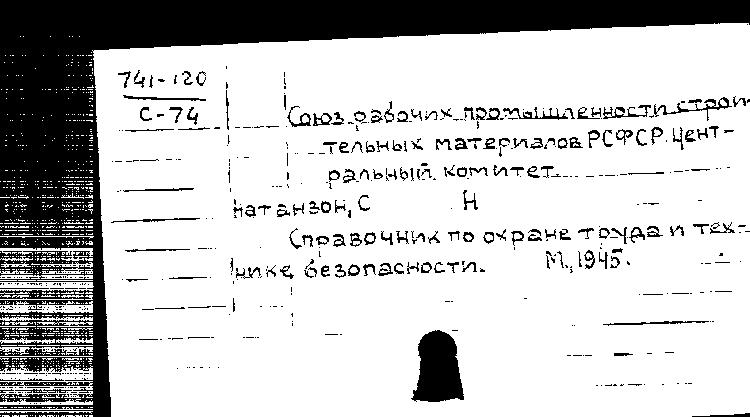 741-120
С-74
Союз рабочих промышленности строи-
тельных материалов РСФСР. Цент-
ральный комитет.
Натанзон, С Н
Справочник по охране труда и тех-
нике безопасности. М., 1945.